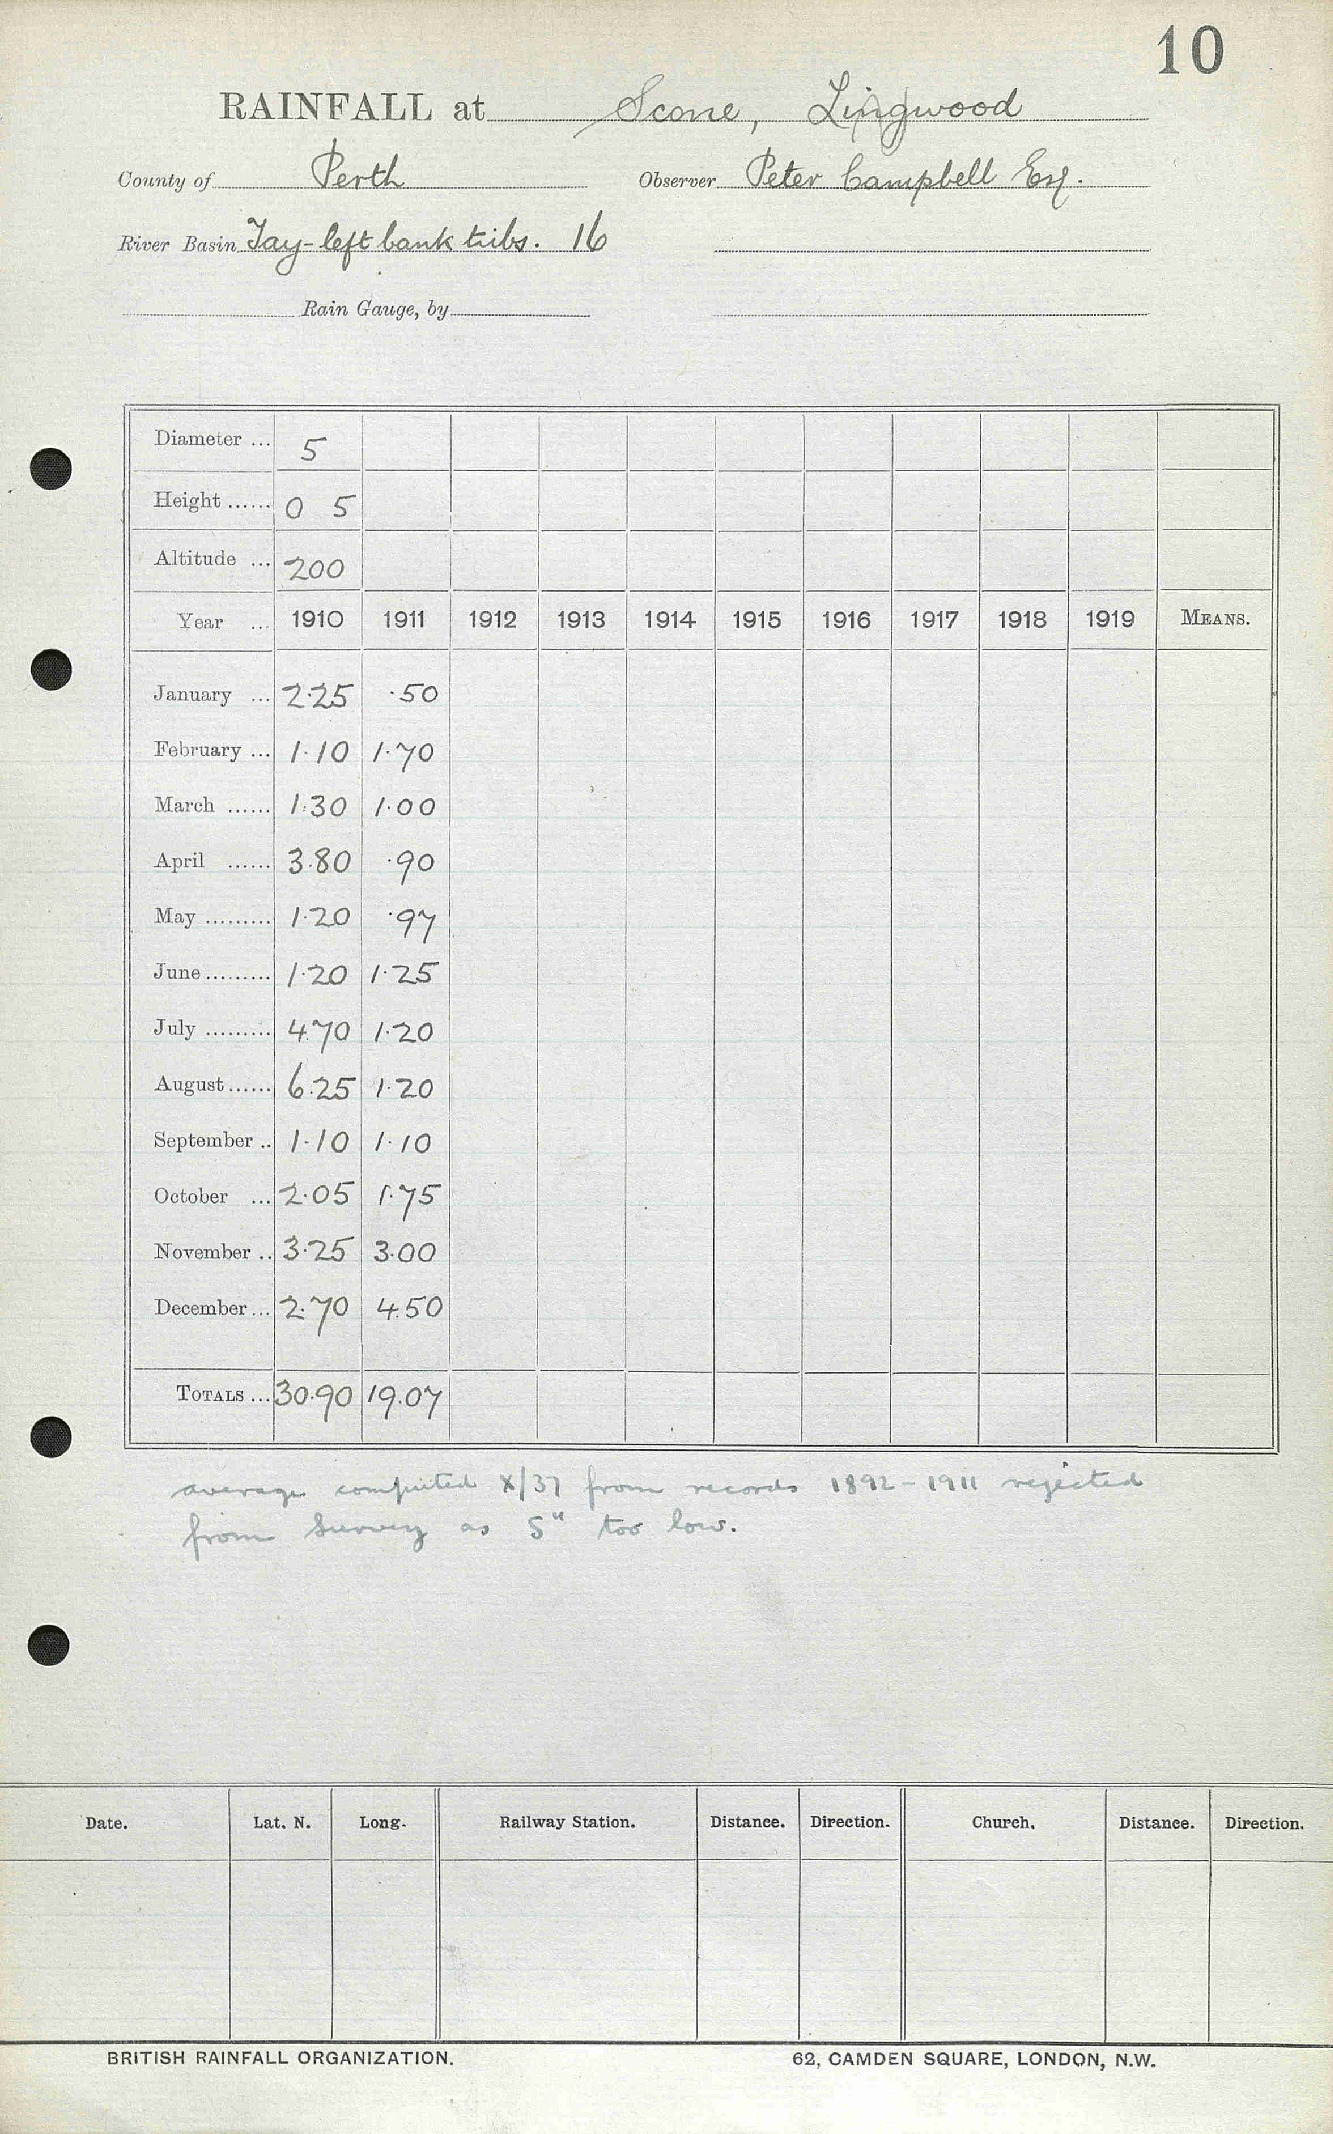 10
RAINFALL at Scone, Lingwood
County of Perth Observer Peter Campbell Esq.
River Basin Tay-left bank tribs. 16
Rain Gauge, by
Diameter ... 5
Height ...... 0 5
Altitude ... 200
Year ... 1910 1911 1912 1913 1914 1915 1916 1917 1918 1919 MEANS.
January ... 2.25 .50
February ... 1.10 1.70
March ...... 1.30 1.00
April ...... 3.80 .90
May ......... 1.20 .97
June ......... 1.20 1.25
July ......... 4.70 1.20
August ...... 6.25 1.20
September .. 1.10 1.10
October ... 2.05 1.75
November .. 3.25 3.00
December ... 2.70 4.50
TOTALS ... 30.90 19.07
average computed X/37 from records 1892-1911 rejected
from Survey as 5" too low.
Date. Lat. N. Long. Railway Station. Distance. Direction. Church. Distance. Direction.
BRITISH RAINFALL ORGANIZATION. 62, CAMDEN SQUARE, LONDON, N.W.